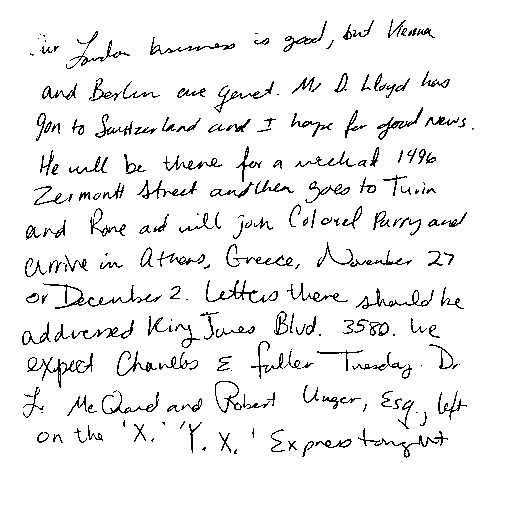 Our London business is good, but Vienna
and Berlin are geuet. Mr D. Lloyd has
gon to Switzerland and I hope for good news.
He will be there for a week at 1496
Zermontt Street and then goes to Turin
and Rone and will join Colonel Parry and
arrive in Athens, Greece, November 27
or December 2. Letters there should be
addressed King James Blvd. 3580. We
expect Charles E. Fuller Tuesday. Dr
L. McQuaid and Robert Unger, Esq., left
on the 'X.' 'Y. X.' Express tonight